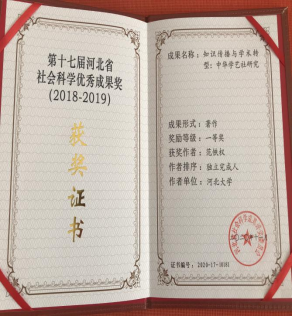 第十七届河北省
社会科学优秀成果奖
(2018-2019)
获奖证书
成果名称：知识传播与学术转
型：中华学艺社研究
成果形式：著作
奖励等级：一等奖
获奖作者：范铁权
作者排序：独立完成人
作者单位：河北大学